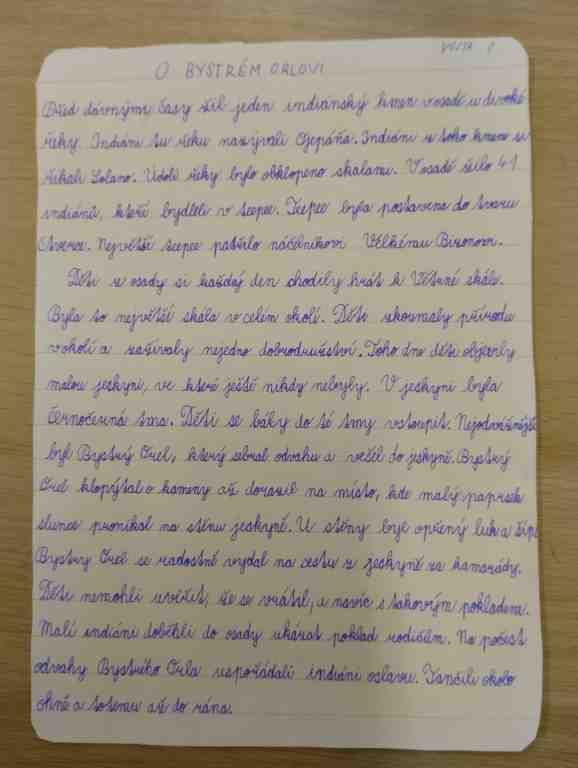 VOJTA P
O BYSTRÉM ORLOVI
Před dávnými časy žil jeden indiánský kmen v osadě u divoké
řeky. Indiáni tu řeku nazývali Ojepáňa. Indiáni z toho kmene si
říkali Solano. Údolí řeky bylo obklopeno skalami. V osadě žilo 41
indiánů, kteří bydleli v teepee. Teepee byla postavena do tvaru
čtverce. Největší teepee patřilo náčelníkovi Velkému Bizonovi.
Děti z osady si každý den chodily hrát k Větrné skále.
Byla to největší skála v celém okolí. Děti zkoumaly přírodu
v okolí a zažívaly nejedno dobrodružství. Toho dne děti objevily
malou jeskyni, ve které ještě nikdy nebyly. V jeskyni byla
černočerná tma. Děti se bály do té tmy vstoupit. Nejodvážnější
byl Bystrý Orel, který sebral odvahu a vešel do jeskyně. Bystrý
Orel klopýtal o kameny až dorazil na místo, kde malý paprsek
slunce pronikal na stěnu jeskyně. U stěny byl opřený luk a šípy
Bystrý Orel se radostně vydal na cestu z jeskyně za kamarády.
Děti nemohli uvěřit, že se vrátil, a navíc s takovým pokladem.
Malí indiáni doběhli do osady ukázat poklad rodičům. Na počest
odvahy Bystrého Orla uspořádali indiáni oslavu. Tančili okolo
ohně a totemu až do rána.